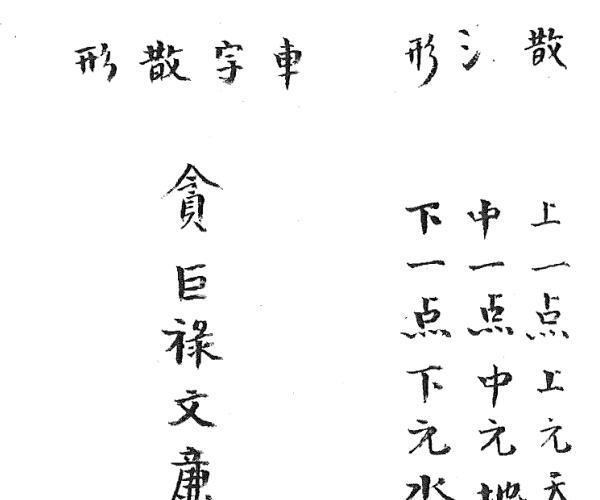 散氵形
上一点上元天
中一点中元地
下一点下元水
車字散形
貪巨祿文廉